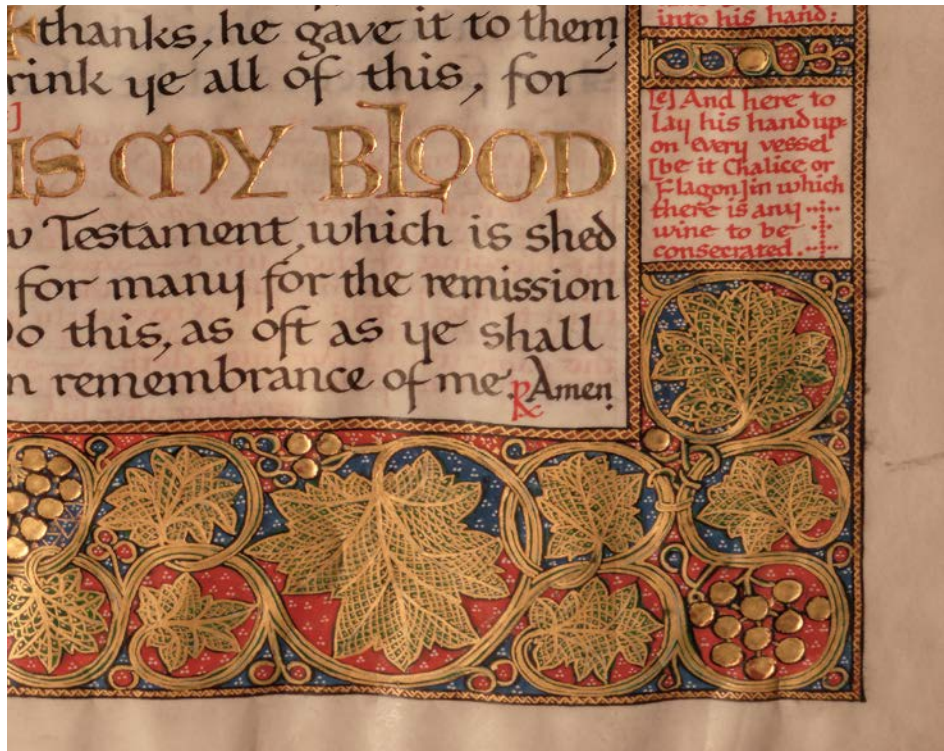 thanks, he gave it to them,
rink ye all of this, for
IS MY BLOOD
Testament, which is shed
for many for the remission
o this, as oft as ye shall
n remembrance of me. Amen
into his hand:
[e] And here to
lay his hand up=
on every vessel
[be it Chalice or
Flagon] in which
there is any
wine to be
consecrated.